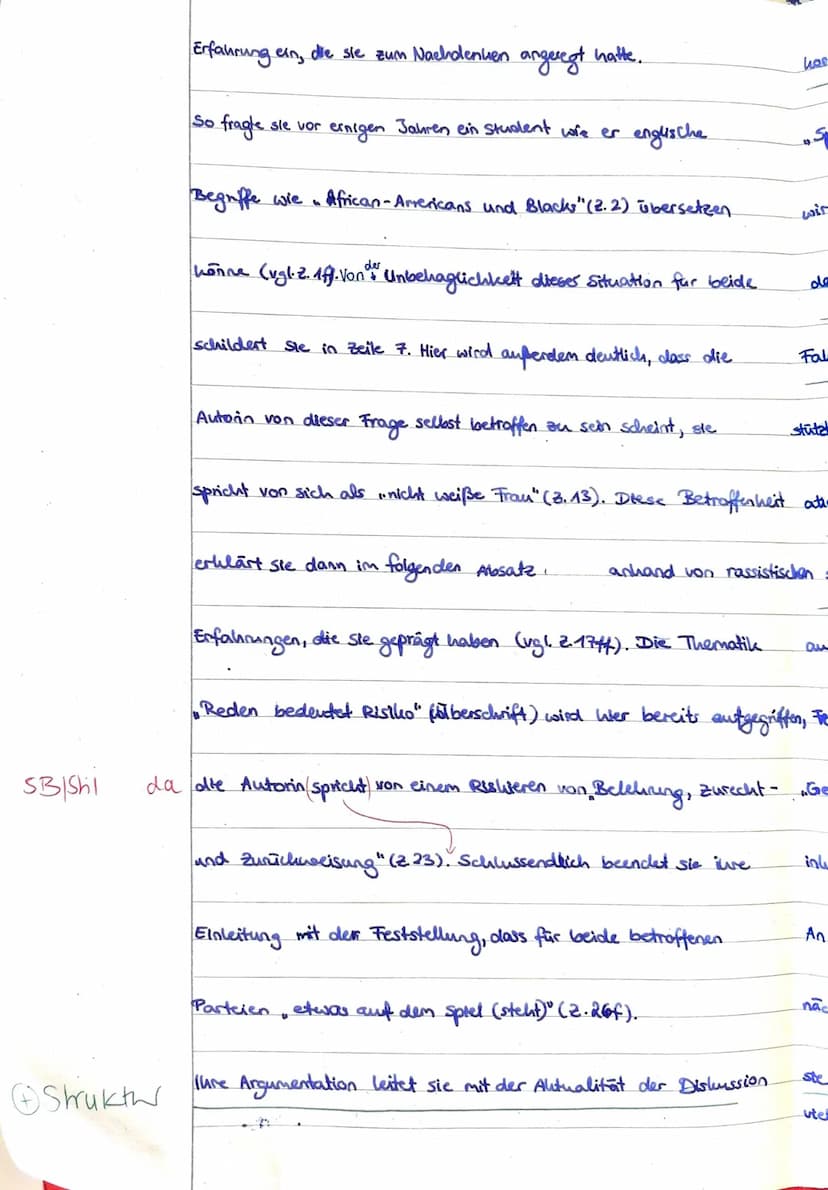 Erfahrung ein, die sie zum Nachdenken angeregt hatte.
So fragte sie vor einigen Jahren ein Student wie er englische
Begriffe wie „African-Americans und Blacks" (Z.2) übersetzen
könne (vgl. Z. 1f). Von der Unbehaglichkeit dieses Situation für beide
schildert sie in Zeile 7. Hier wird außerdem deutlich, dass die
Autorin von dieser Frage selbst betroffen zu sein scheint, sie
spricht von sich als „nicht weiße Frau" (Z.13). Diese Betroffenheit
erklärt sie dann im folgenden Absatz anhand von rassistischen
Erfahrungen, die sie geprägt haben (vgl. Z.17ff). Die Thematik
„Reden bedeutet Risiko" (Überschrift) wird hier bereits aufgegriffen,
SB/Stil da die Autorin (spricht) von einem Riskieren von „Belehrung, Zurecht-
und Zurückweisung" (Z 23). Schlussendlich beendet sie ihre
Einleitung mit der Feststellung, dass für beide betroffenen
Parteien „etwas auf dem Spiel (steht)" (Z.26f).
+ Struktur Ihre Argumentation leitet sie mit der Aktualität der Diskussion
wir
Fal
stütz
„Ge
An
näc
ste